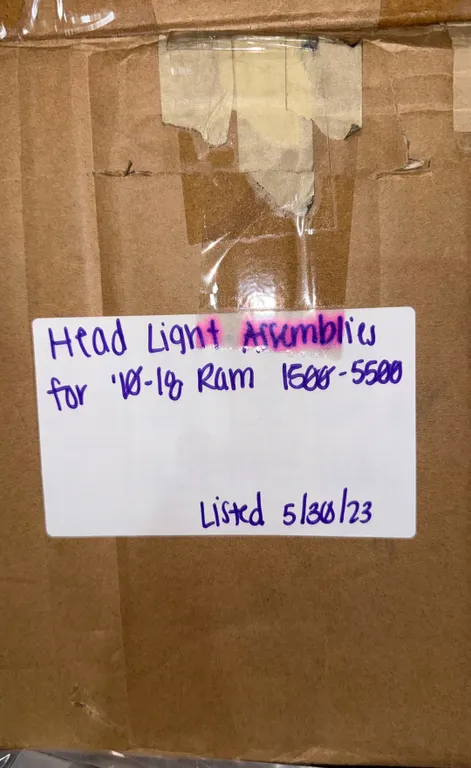 Head Light Assemblies
for '10-18 Ram 1500-5500
Listed 5/30/23